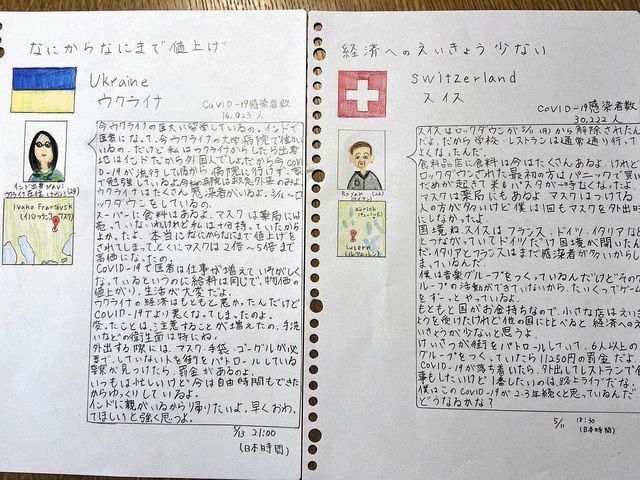 なにからなにまで値上げ
Ukraine
ウクライナ
COVID-19感染者数
16,023 人
今ウクライナの医大に留学しているの。インドで
医者になって、今ウクライナの大学病院で働い
いるの。だけど私はウクライナ人
地はインドだから外国人でしょだから今COVI
D-19が流行しているから病院に行けず、家
で勉強しているよ。
ウクライナはたくさん感染者がいるよ。3/12〜ロ
ックダウンをしているの。
スーパーに食料はあるよ。マスクは薬局には
売っていないけれど私は十個持っていたから
よかったよ。本当になにからなにまで値上げを
されてしまって、とくにマスクは2倍〜5倍まで
高価になったの。
COVID-19で医者は仕事が増えていそがしく
なっているというのに給料は同じで、物価の
値上がり、生活が大変だよ。
ウクライナの経済はもともと悪かったんだけど
COVID-19でより悪くなってしまったのよ。
変ったことは、注意することが増えたの。手洗
いなどの衛生面は特にね。
外出する際には、マスク、手袋、ゴーグルが必
要で、していない人を街をパトロールしている
警察が見つけたら、罰金があるのよ。
いつもは忙しいけど今は自由時間もできた
からゆっくりしているよ。
インドに親がいるから帰りたいよ。早くおわっ
てほしいと強く思うよ。
5/13 21:00
(日本時間)
インド出身
Ivano Frankivsk
経済へのえいきょう少ない
Switzerland
スイス
COVID-19感染者数
30,222 人
スイスはロックダウンが5/11(月)から解除されたん
だよ。だから学校・レストランは通常通り行って
よくなったんだ。
食料品店に食料は今はたくさんあるよ。けれど
ロックダウンされた最初の方はパニックで買い
だめが起きて米もパスタが一時なくなったよ。
マスクは薬局にもあるよ。マスクはつけてる
人の方が多いけど僕は1回もマスクを外出時
にしなかったよ。
国境ね、スイスはフランス、ドイツ、イタリアなど
とつながっていてドイツだけ国境が開いたん
だ。イタリアとフランスはまだ感染者が多いからし
まっているんだ。
僕は音楽グループをつくっているんだけどそのグ
ループの活動ができていないから、たいくつでゲーム
をずーっとやっているよ。
もともと国がお金持ちなので、小さな店はえいき
ょうを受けたけれど他の国に比べると経済へのえ
いきょうが少ないと思うよ。
けいさつが街をパトロールしていて、6人以上の
グループをつくっていたら11250円の罰金だよ。
COVID-19が落ち着いたら、外出してレストランで食
事もしたいけど1番したいのは、路上ライブだな。
僕はこのCOVID-19が2-3年続くと思っているんだ。
どうなるかな?
5/11 18:30
(日本時間)
Zürich
Luzern